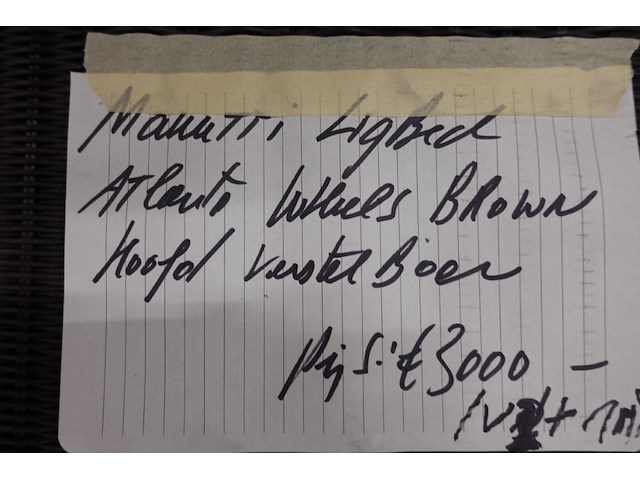 Manutti Ligbed
Atlanta Wheels BROWN
Hoofd verstelBaar
Prijs: € 3000 –